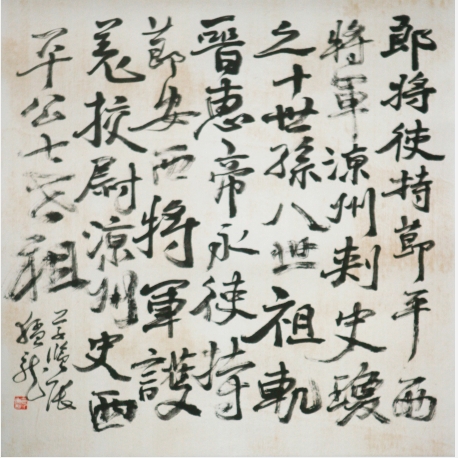 郎將使持節平西
將軍涼州刺史瓊
之十世孫八世祖軌
晉惠帝永使持
節安西將軍護
羌挍尉涼州史西
平公七世祖
張
猛龍